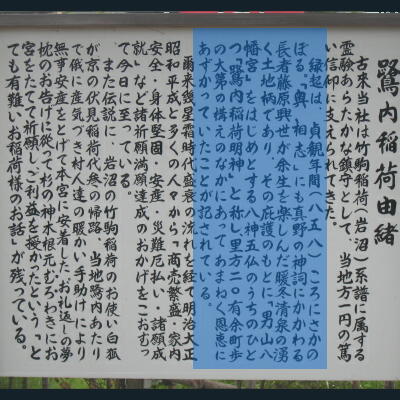 鷺内稲荷由緒
古来当社は竹駒稲荷(岩沼)系譜に属する
霊験あらたかな鎮守として、当地方一円の篤
い信仰に支えられてきた。
縁起は、貞観年間(八五八)ころにさかの
ぼる。「奥相志」にも真野の神詞にかかわる
長者藤原興世が余生を楽しんだ暖冬清泉の湧
く土地柄であり、その庇護のもとに「男山八
幡宮」をはじめとする八神五仏のうちのひと
つ「鷺内稲荷明神」と称し里方二〇有余町歩
の大第の構えのなかにあってあまねく恩恵に
あずかっていたことが記されている。
爾来幾星霜時代盛衰の流れを経て明治大正
昭和平成と多くの人々から「商売繁盛・家内
安全・身体堅固・安産・災難厄払い・諸願成
就」など諸祈願満願達成のおかげをこおむっ
て今日に至っている。
また伝説に、岩沼の竹駒稲荷のお使い白狐
が京の伏見稲荷代参の帰路、当地鷺内あたり
で俄に産気づき村人達の暖かい手助けにより
無事安産をとげて本宮に安着した。お礼返しの夢
枕のお告げに従って杉の神木根元むろわきにお
宮をたてて祈願しご利益を授かったという「と
ても有難いお稲荷様のお話」が残っている。